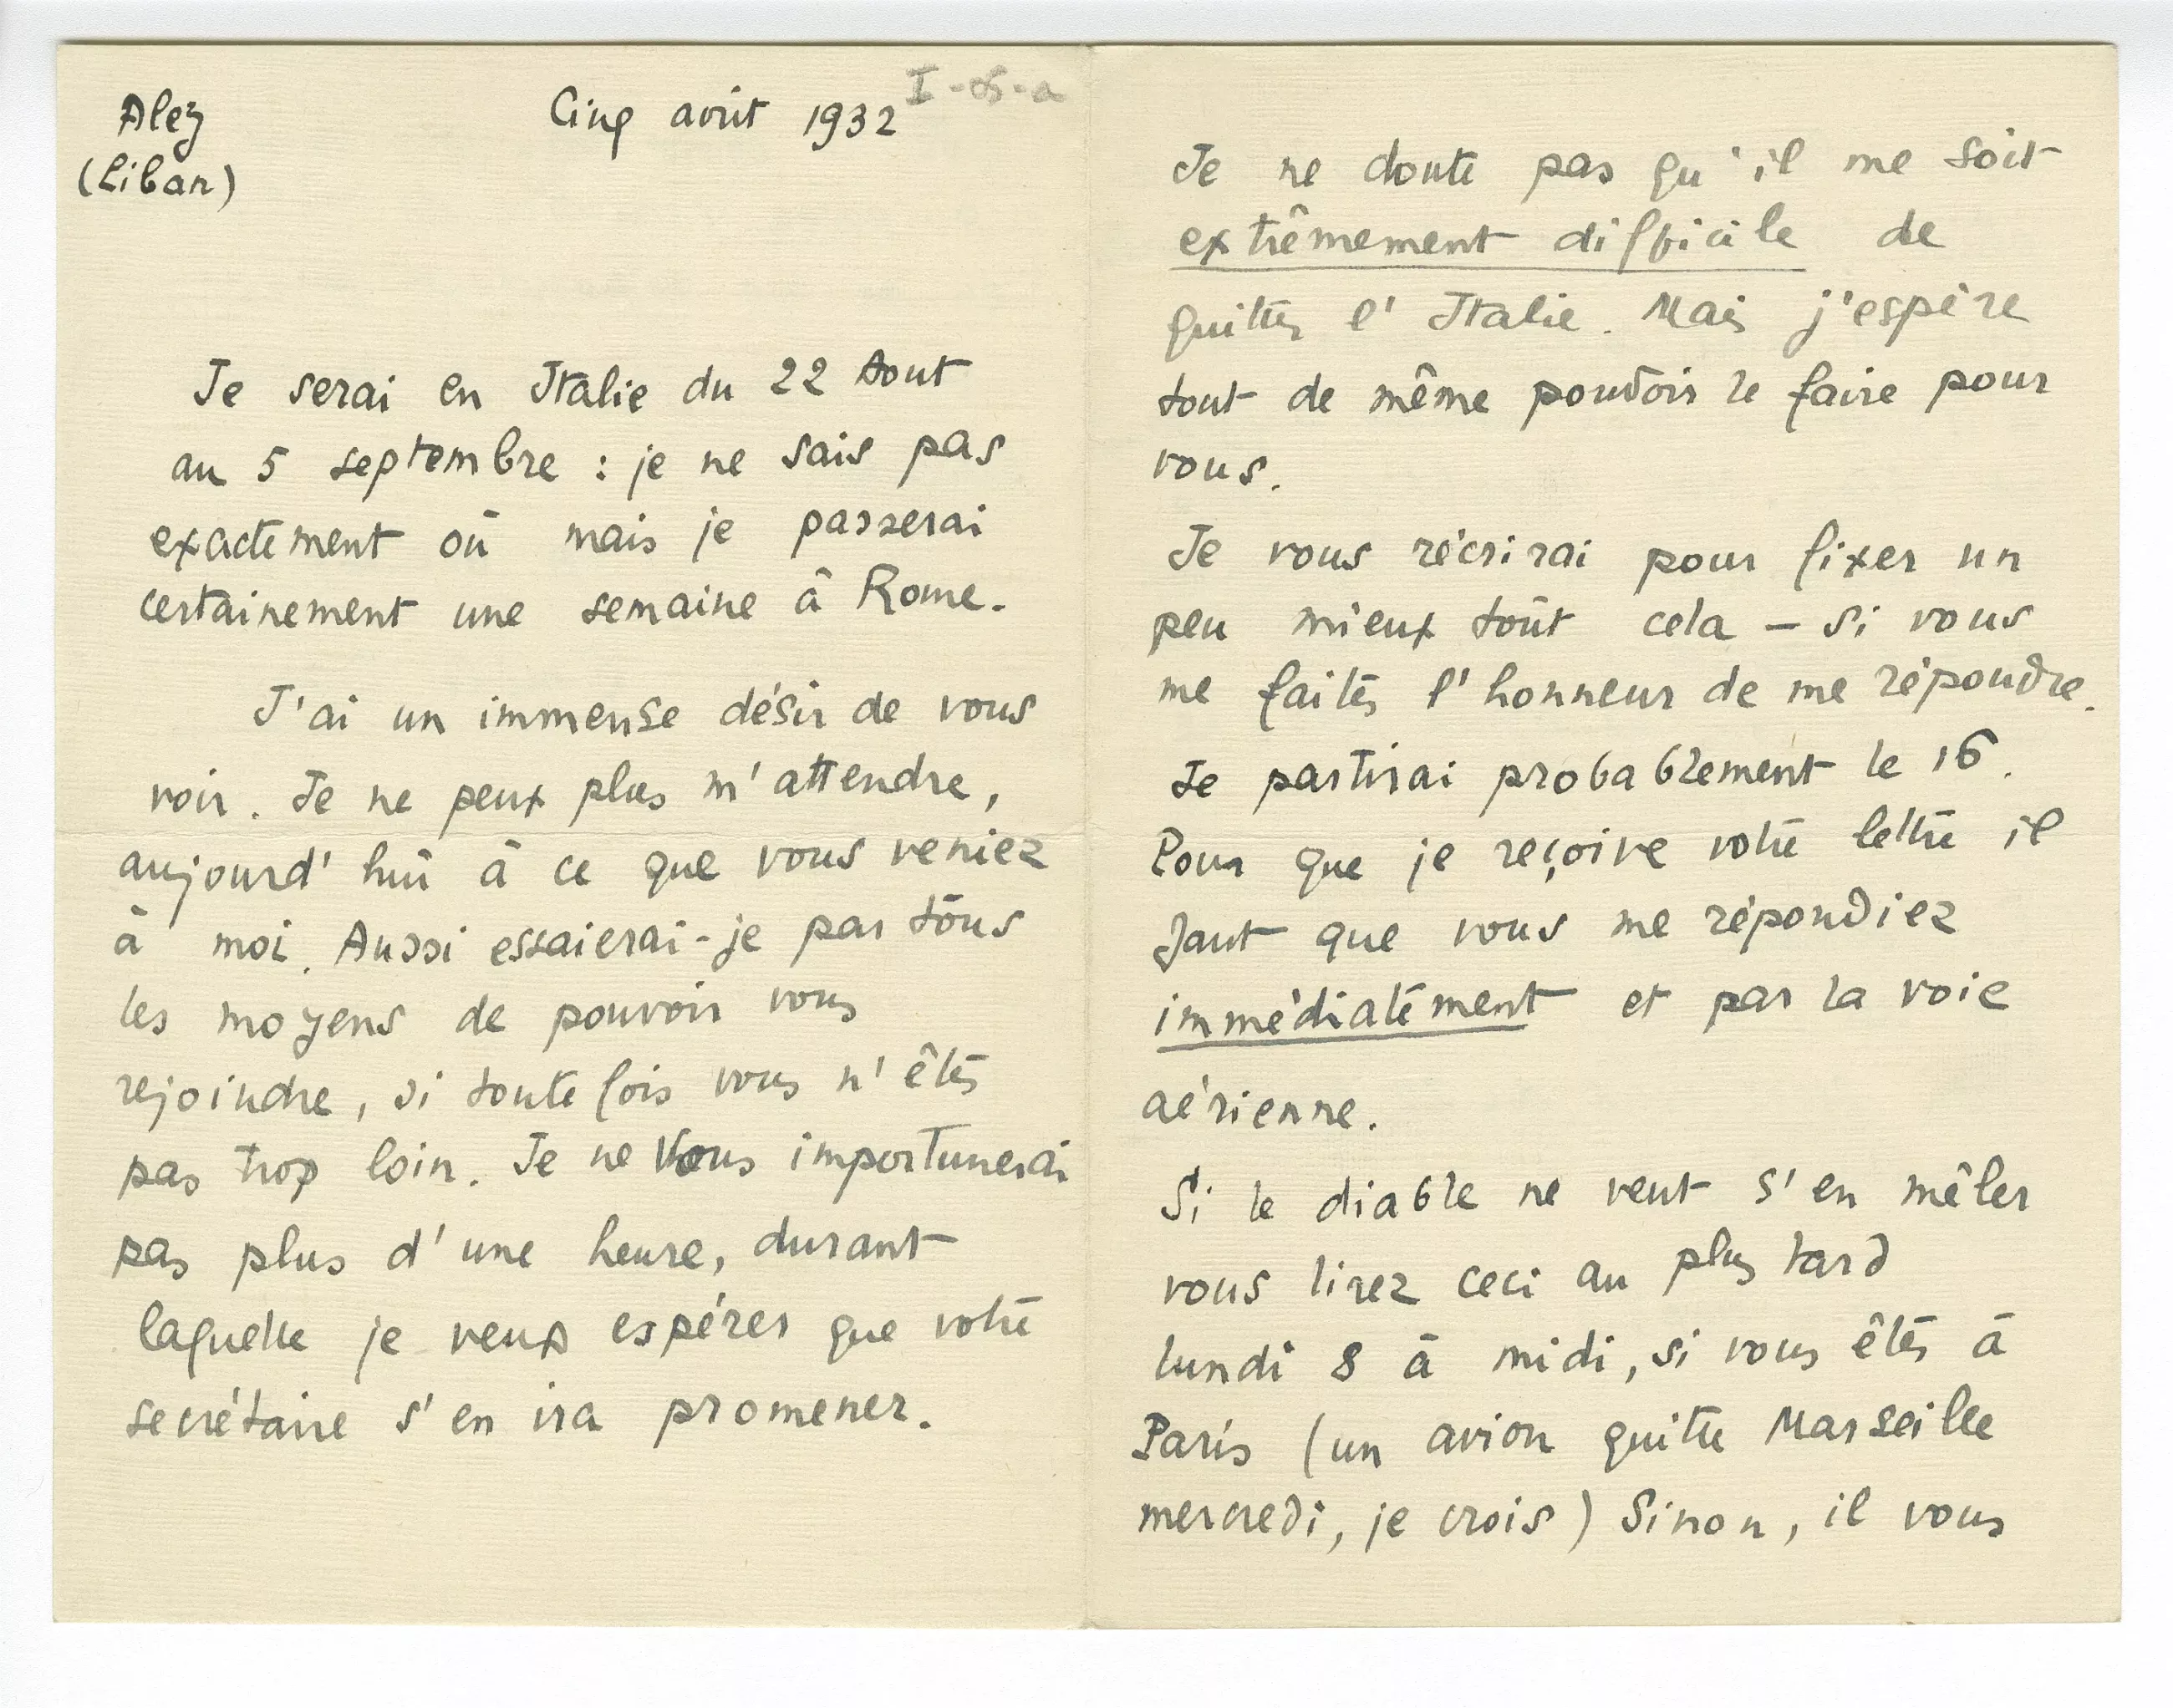 Aley
(Liban)
Cinq août 1932
Je serai en Italie du 22 Aout
au 5 septembre : je ne sais pas
exactement où mais je passerai
certainement une semaine à Rome.
J'ai un immense désir de vous
voir. Je ne peux plus m'attendre,
aujourd'hui à ce que vous veniez
à moi. Aussi essaierai-je par tous
les moyens de pouvoir vous
rejoindre, si toute fois vous n'êtes
pas trop loin. Je ne vous importunerai
pas plus d'une heure, durant
laquelle je veux espérer que votre
secrétaire s'en ira promener.
Je ne doute pas qu'il me soit
extrêmement difficile de
quitter l'Italie. Mais j'espère
tout de même pouvoir le faire pour
vous.
Je vous récrirai pour fixer un
peu mieux tout cela – si vous
me faites l'honneur de me répondre.
Je partirai probablement le 16.
Pour que je reçoive votre lettre il
faut que vous me répondiez
immédiatement et par la voie
aérienne.
Si le diable ne veut s'en mêler
vous lirez ceci au plus tard
lundi 8 à midi, si vous êtes à
Paris (un avion quitte Marseille
mercredi, je crois) Sinon, il vous